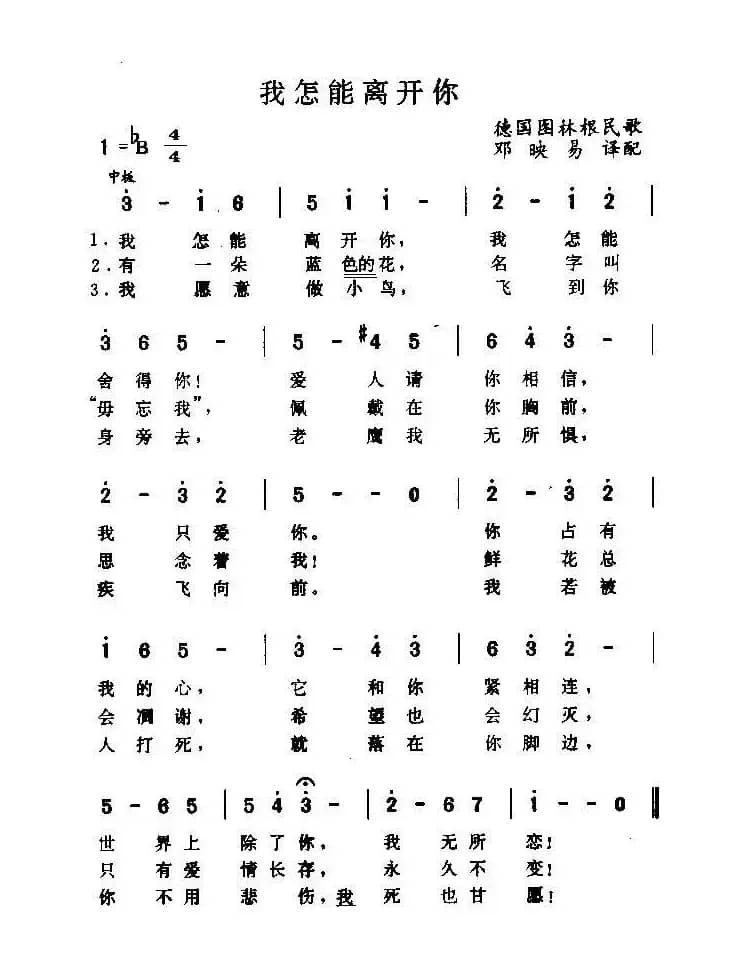 我怎能离开你
1=♭B 4/4
德国图林根民歌
邓映易译配
中板
3̇ - 1̇ 6 | 5 1̇ 1̇ - | 2̇ - 1̇ 2̇
1.我 怎能 离开你, 我 怎能
2.有 一朵 蓝色的花, 名 字叫
3.我 愿意 做小鸟, 飞 到你
3̇ 6 5 - | 5 - #4 5 | 6 4̇ 3̇ -
舍得你! 爱 人请 你相信,
“毋忘我”, 佩 戴在 你胸前,
身旁去, 老 鹰我 无所惧,
2̇ - 3̇ 2̇ | 5 - - 0 | 2̇ - 3̇ 2̇
我 只爱 你。 你 占有
思 念着 我! 鲜 花总
疾 飞向 前。 我 若被
1̇ 6 5 - | 3̇ - 4̇ 3̇ | 6 3̇ 2̇ -
我的心, 它 和你 紧相连,
会凋谢, 希 望也 会幻灭,
人打死, 就 落在 你脚边,
5 - 6 5 | 5 4̇ 3̇ - | 2̇ - 6 7 | 1̇ - - 0 ‖
世 界上 除了你, 我 无所 恋!
只 有爱 情长存, 永 久不 变!
你 不用 悲伤, 我 死 也甘 愿!